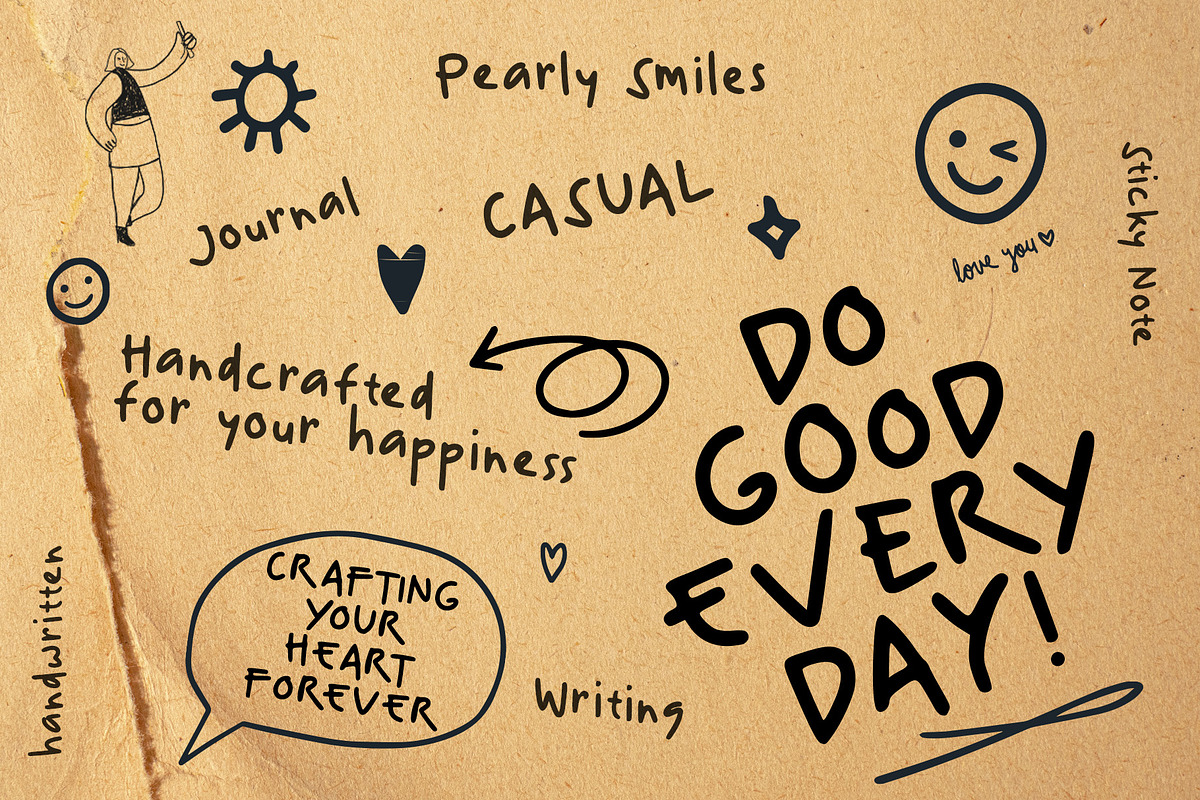 Pearly Smiles
Journal
CASUAL
love you
Sticky Note
Handcrafted
for your happiness
DO
GOOD
EVERY
DAY!
handwritten
CRAFTING
YOUR
HEART
FOREVER
Writing